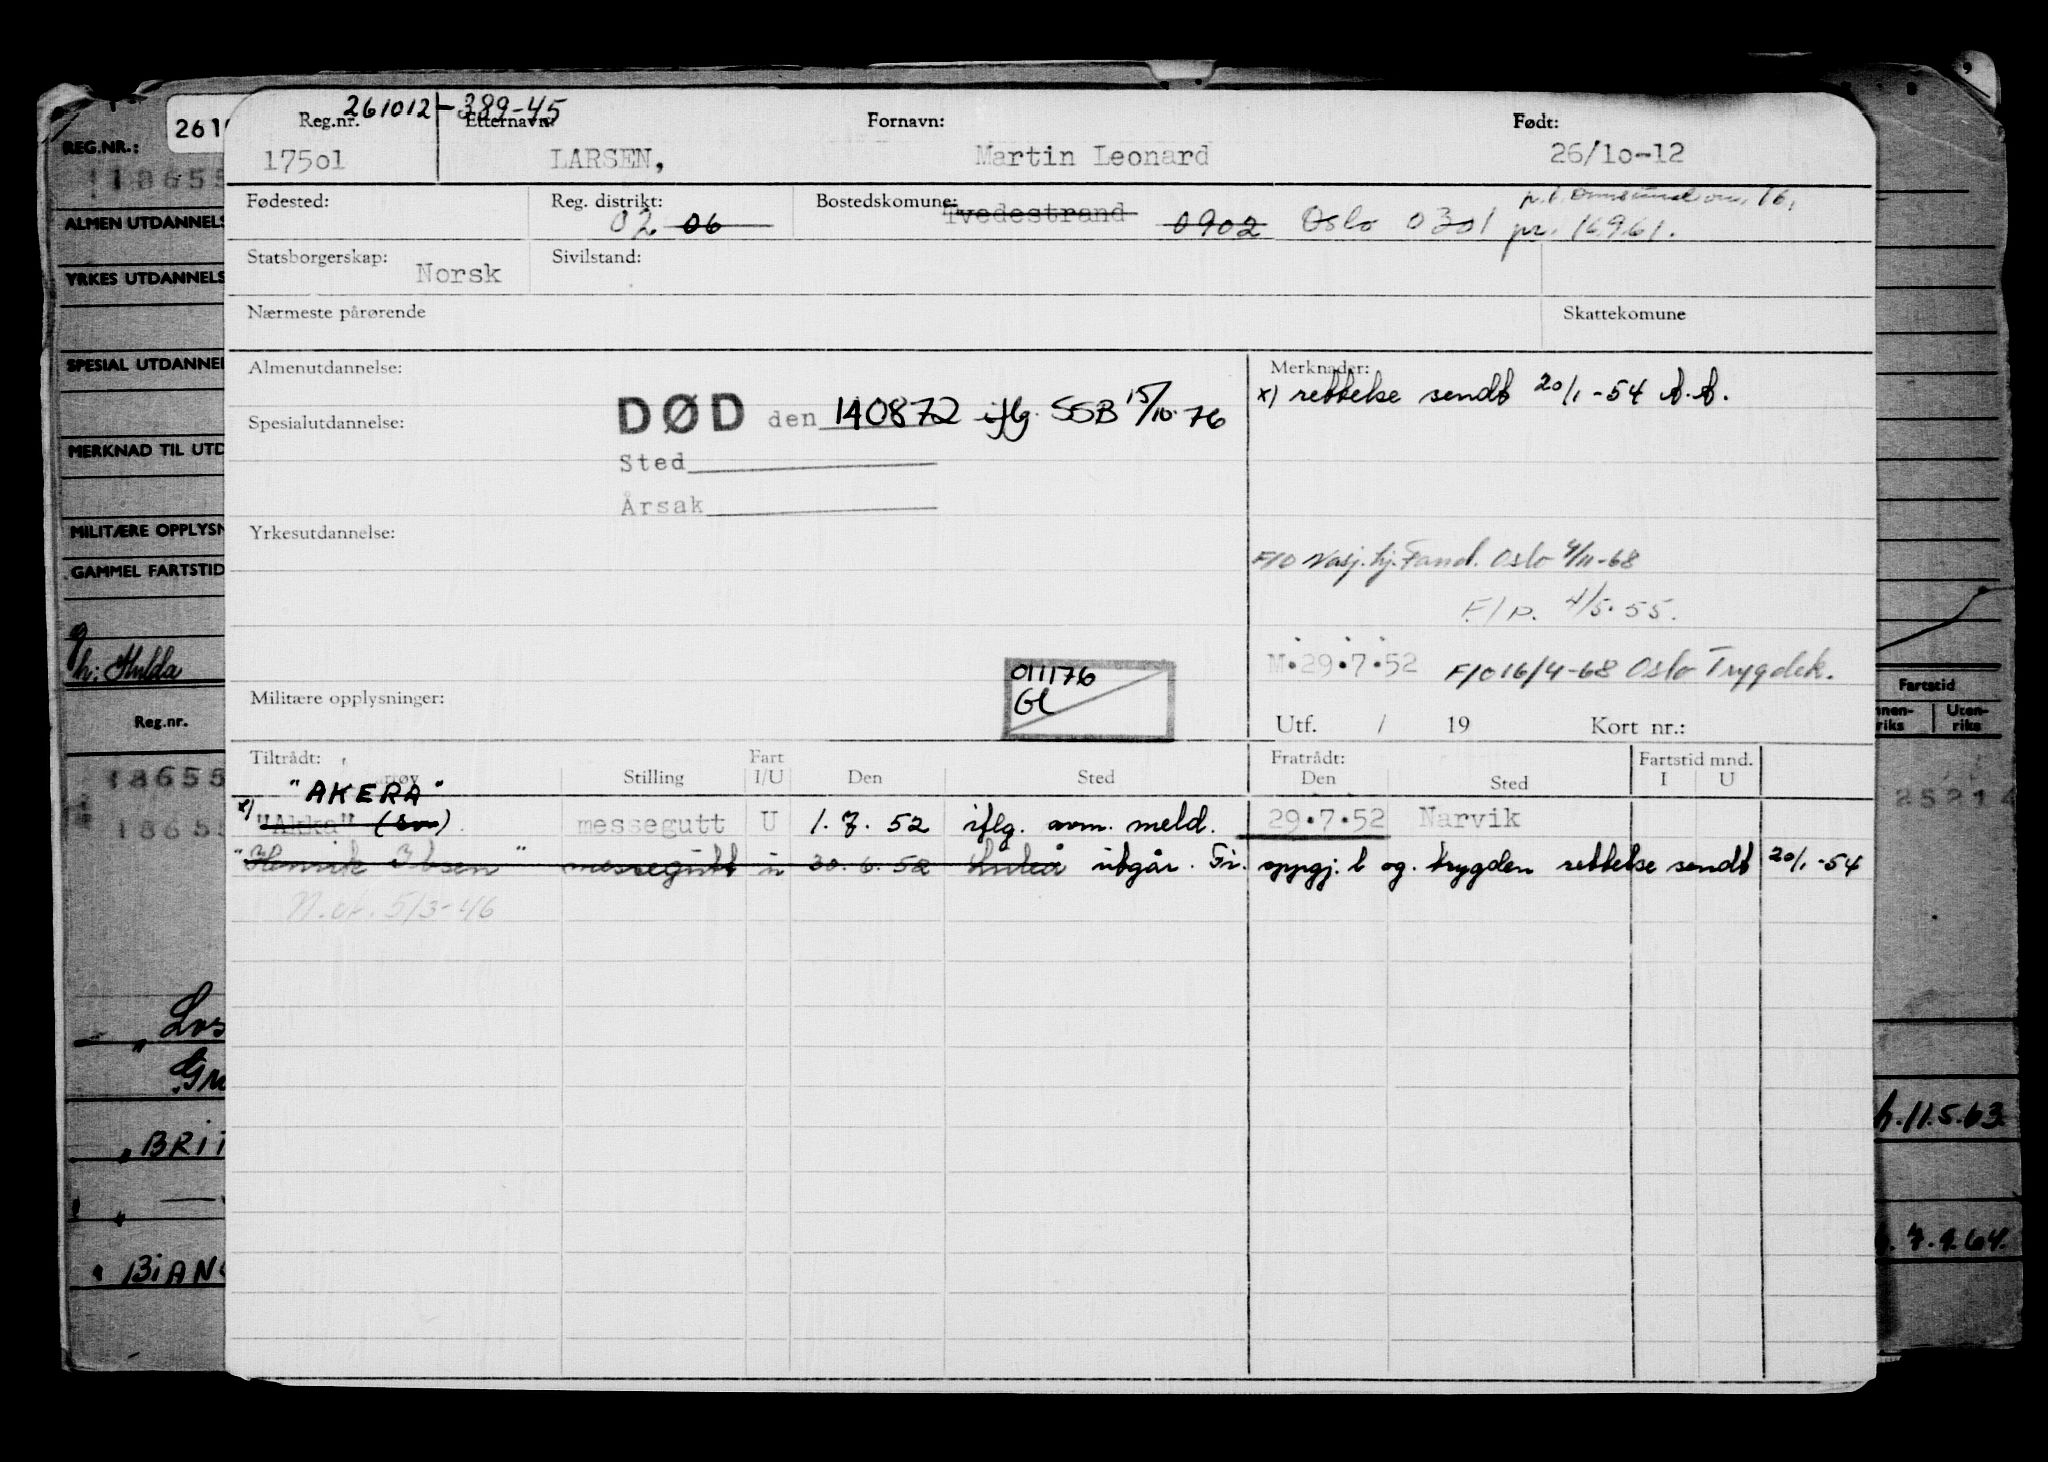 261012-389-45
Reg.nr. Etternavn: Fornavn: Født:
17501 LARSEN, Martin Leonard 26/10-12
Fødested: Reg. distrikt: 02 06 Bostedskomune: Tvedestrand 0902 Oslo 0301 pr. 16961.
Statsborgerskap: Norsk Sivilstand:
Nærmeste pårørende Skattekomune
Almenutdannelse: Merknader:
x) rettelse sendt 20/1-54 A.A.
DØD den 140872 iflg. SSB 15/10-76
Spesialutdannelse:
Sted
Årsak
Yrkesutdannelse:
F/O Nasj.hj. Oslo 4/11-68
F/p. 4/5-55.
M.29.7.52 F/O 16/4-68 Oslo Trygdek.
011176
Gl
Militære opplysninger:
Utf. / 19 Kort nr.:
Tiltrådt: Fart Fratrådt: Fartstid mnd.
Stilling I/U Den Sted Den Sted I U
"AKERA"
x) "Akka" messegutt U 1.7.52 iflg. avm. meld. 29.7.52 Narvik
"Henrik Ibsen" messegutt u 30.6.52 Luleå utgår. Tr. oppgj. b og. trygden rettelse sendt 20/1-54
5/3-46
261
REG.NR.:
18655
ALMEN UTDANNELS
YRKES UTDANNELS
SPESIAL UTDANNEL
MERKNAD TIL UTD
MILITÆRE OPPLYSN
GAMMEL FARTSTID
h: Hulda
Reg.nr.
18655
18655
Los
"BRIT
" BIAN
Fartstid
nnen-
riks
Uten-
riks
25214
h.11.5.63
7.1.64.